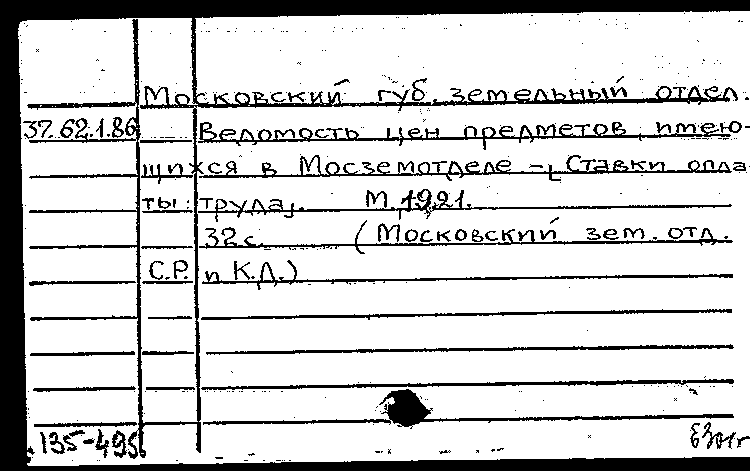 Московский губ. земельный отдел.
37.62.1.86 Ведомость цен предметов, имею-
щихся в Мосземотделе - [Ставки опла-
ты труда]. М., 1921.
32 с. (Московский зем. отд.
С.Р. и К.Д.)
135-495